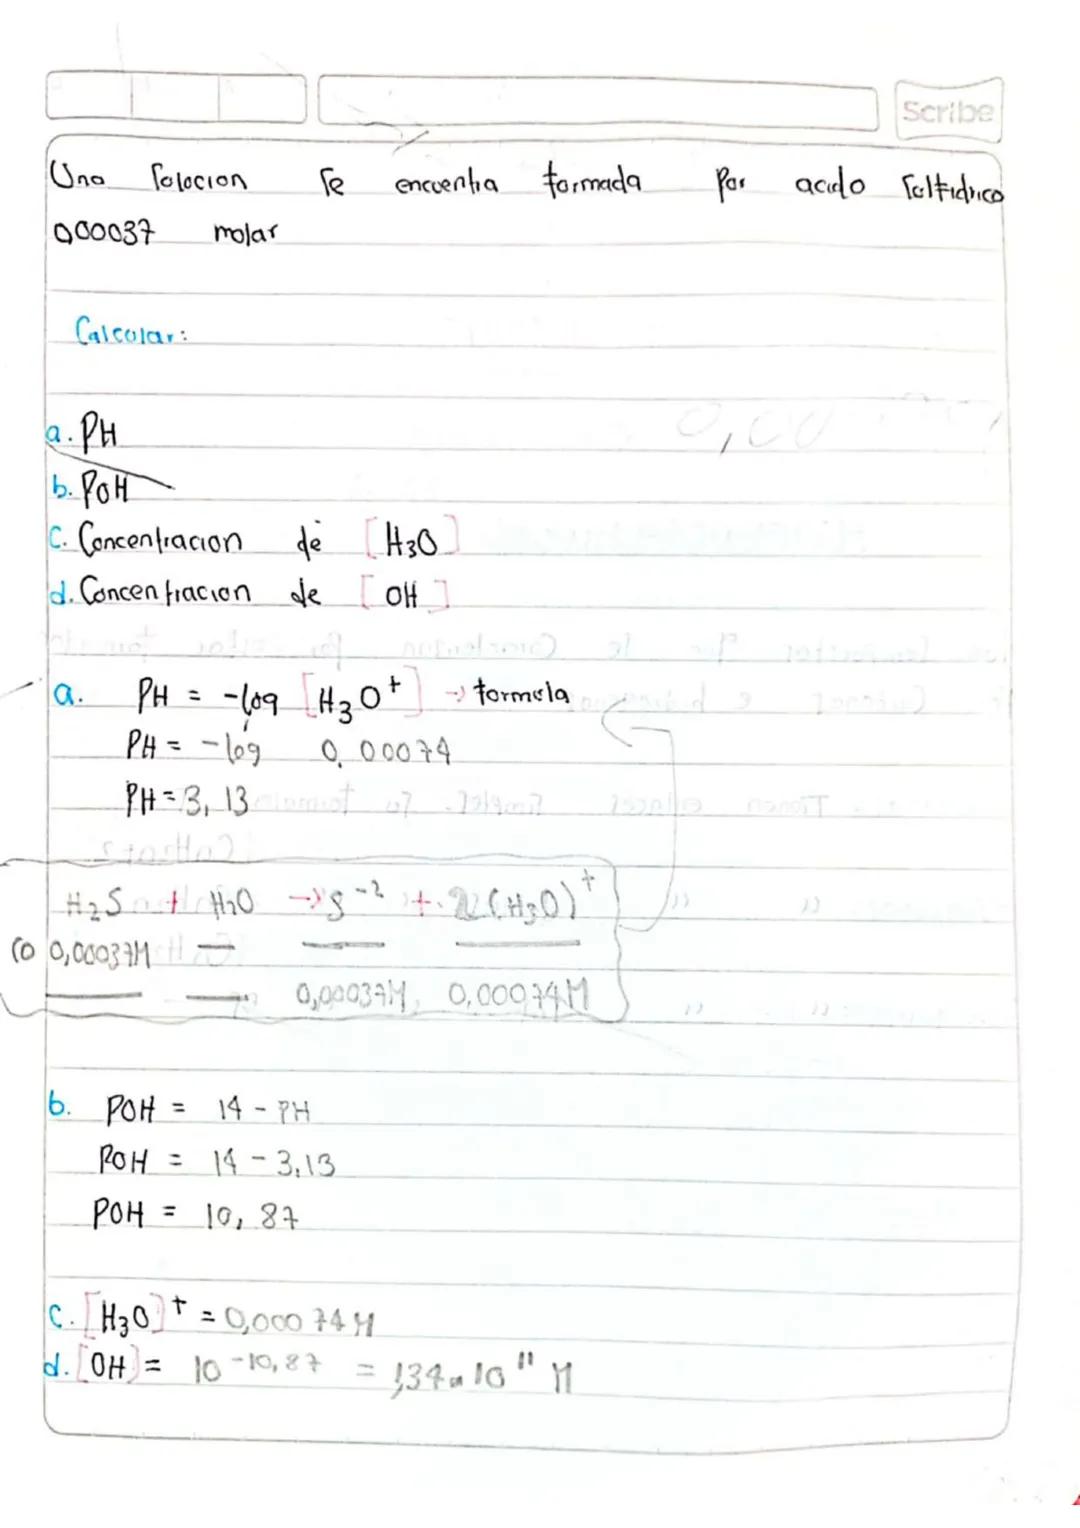 Scribe
Una Solocion Se encuentra formada Por acido Sulfidrico
0,00037 molar
Calcolar:
a. PH
b. POH
C. Concentracion de [H3O]
d. Concentracion de [OH]
a. PH = -log [H3O+] → formula
PH = -log 0,00074
PH = 3,13
H2S + H2O → S-2 + 2(H3O)+
CO 0,00037M — — —
— — 0,00037M 0,00074M
b. POH = 14 - PH
POH = 14 - 3,13
POH = 10,87
C. [H3O]+ = 0,00074 M
d. [OH] = 10 -10,87 = 1,34 x 10 11 M